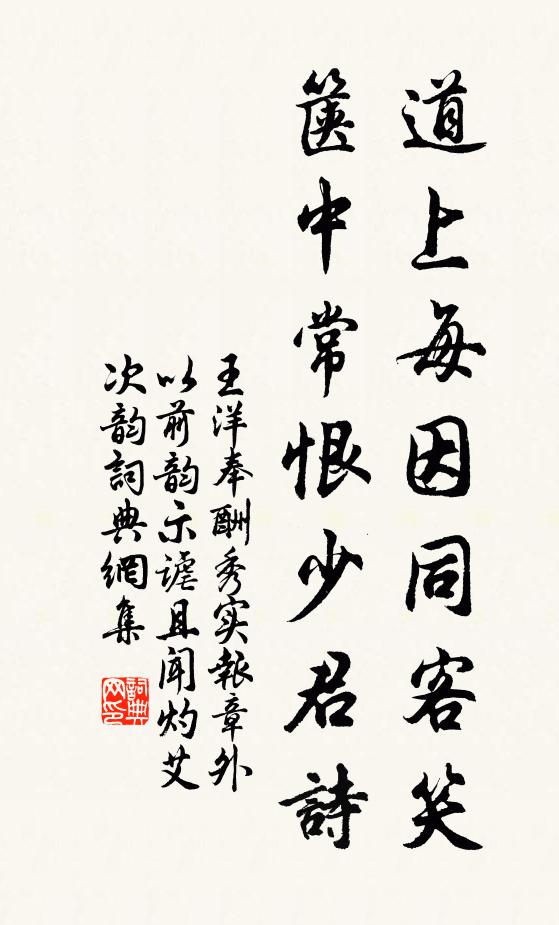 道上每因同客笑
篋中常恨少君詩
王洋奉酬秀实報章外
以前韵示謔且闻灼艾
次韵詞典網集
詞典
网印